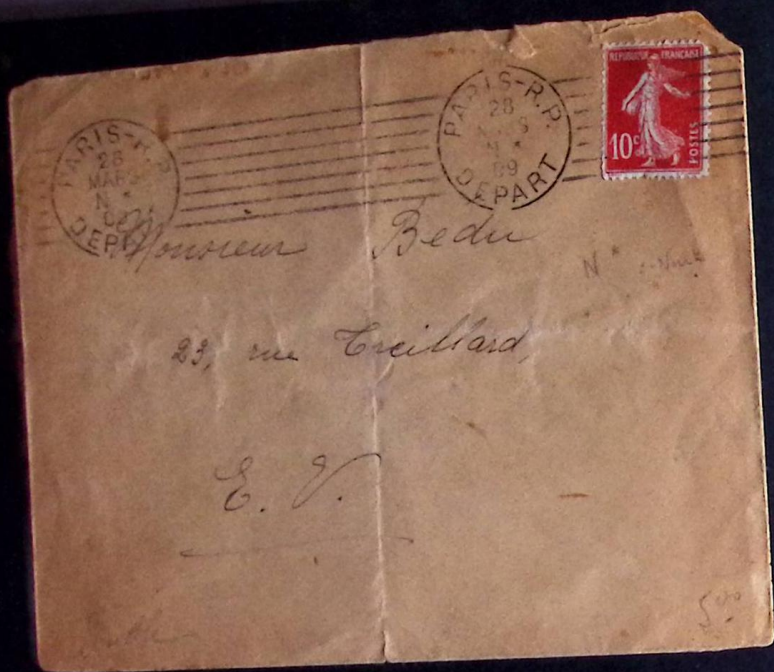 PARIS-R.P.
28
MARS
N *
09
DEPART
PARIS-R.P.
28
N *
09
DEPART
REPUBLIQUE FRANÇAISE
10c
POSTES
Monsieur Bedu
N *
23, rue Treillard,
E. V.